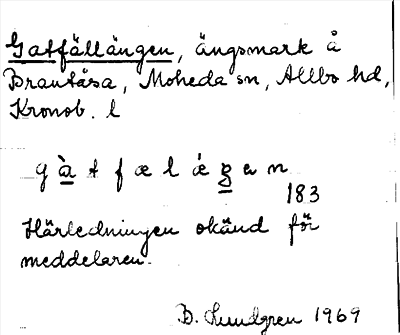 Gatfällängen, ängsmark å
Brantåsa, Moheda sn, Allbo hd,
Kronob. l
g à t f æ l ǽ g e n
183
Härledningen okänd för
meddelaren.
B. Lundgren 1969